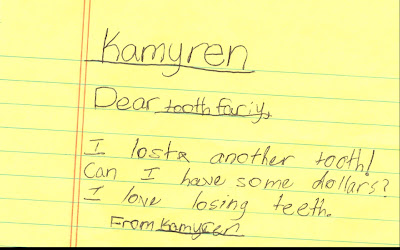 Kamyren
Dear tooth fariy,
I lost another tooth!
Can I have some dollars?
I love losing teeth.
From Kamyren